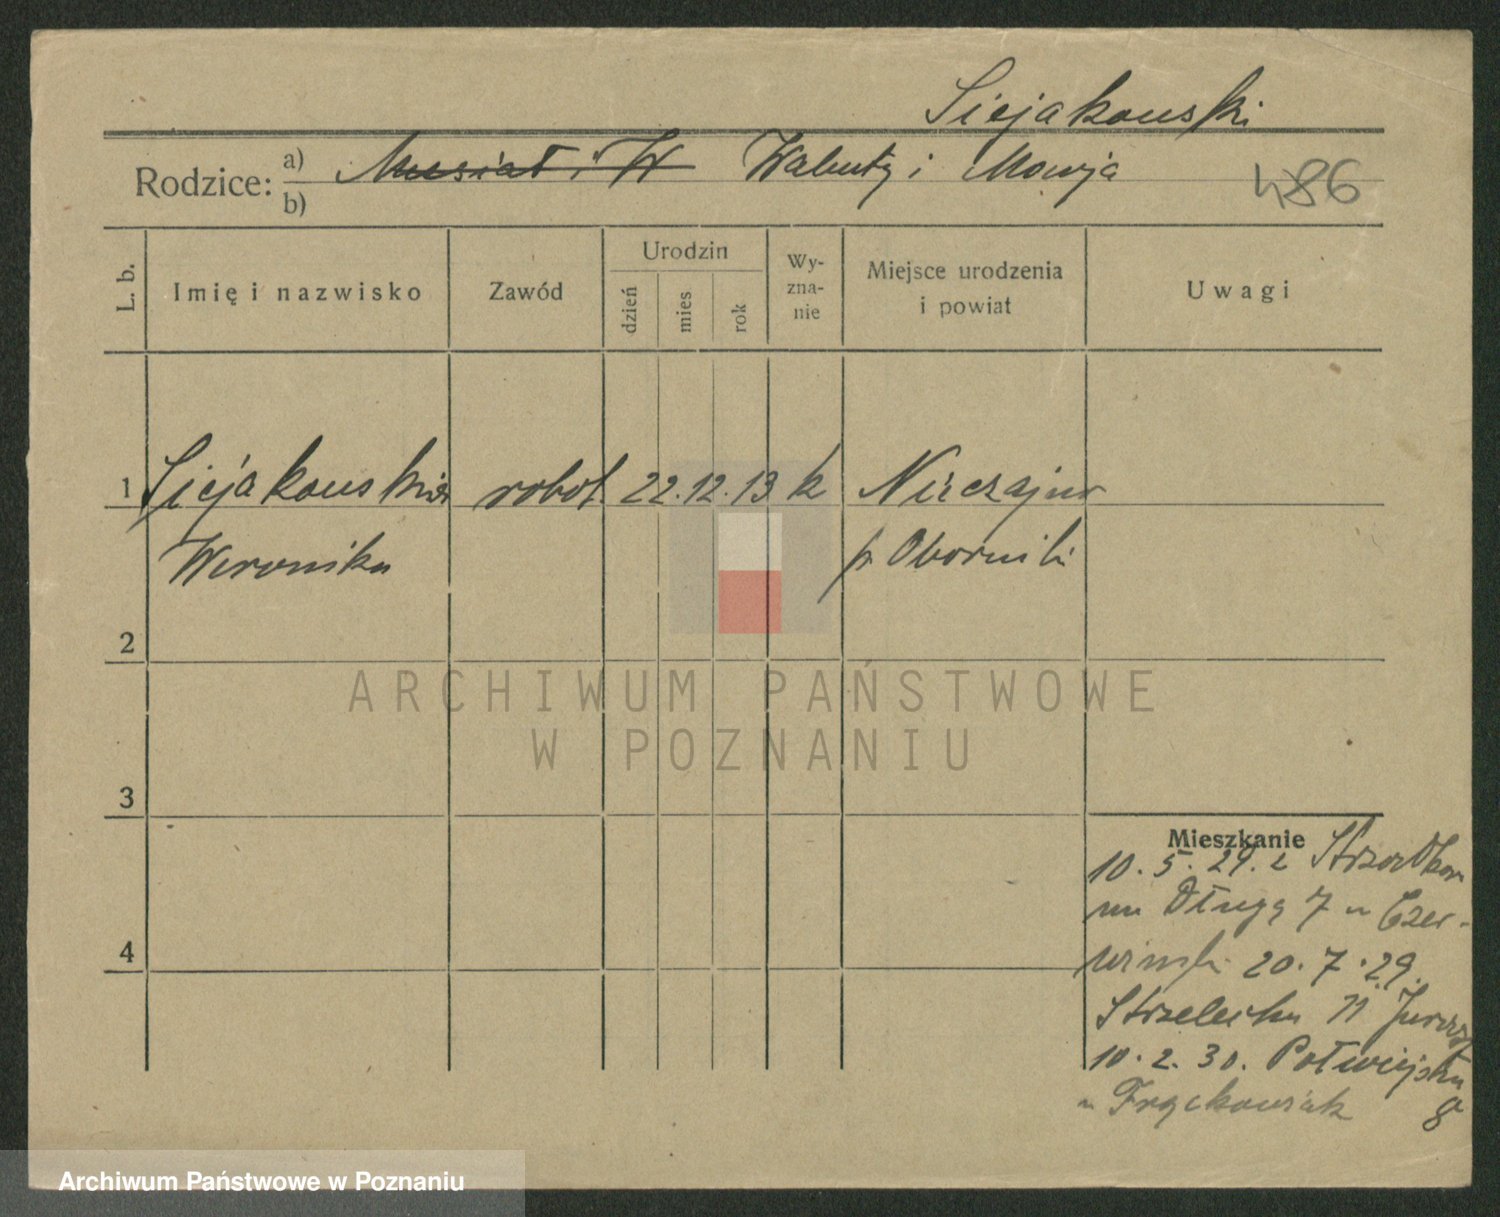 Siejakowski
Rodzice: a) Walenty i Maryja
b)
486
L. b.
Imię i nazwisko
Zawód
Urodzin
dzień
mies
rok
Wy-
zna-
nie
Miejsce urodzenia
i powiat
Uwagi
1 Siejakowska robot. 22. 12. 13 k
Weronika p. Oborniki
2
3
4
ARCHIWUM PAŃSTWOWE
W POZNANIU
Mieszkanie
10. 5. 29. z
na Długą 7 u Czer-
wińsk 20. 7. 29.
Strzelecka 11
10. 2. 30. Półwiejska
u Frąckowiak 8
Archiwum Państwowe w Poznaniu